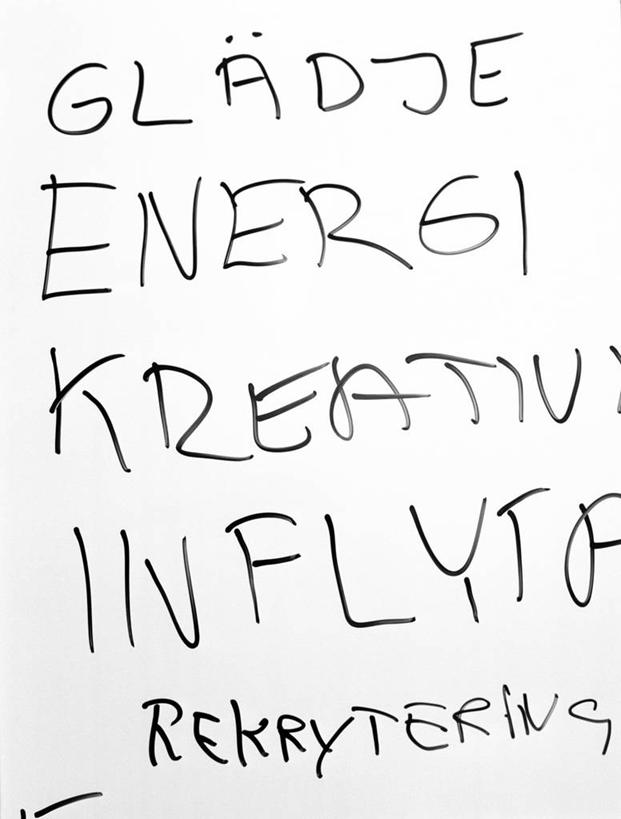 GLÄDJE
ENERGI
KREATIV
INFLYTA
REKRYTERING